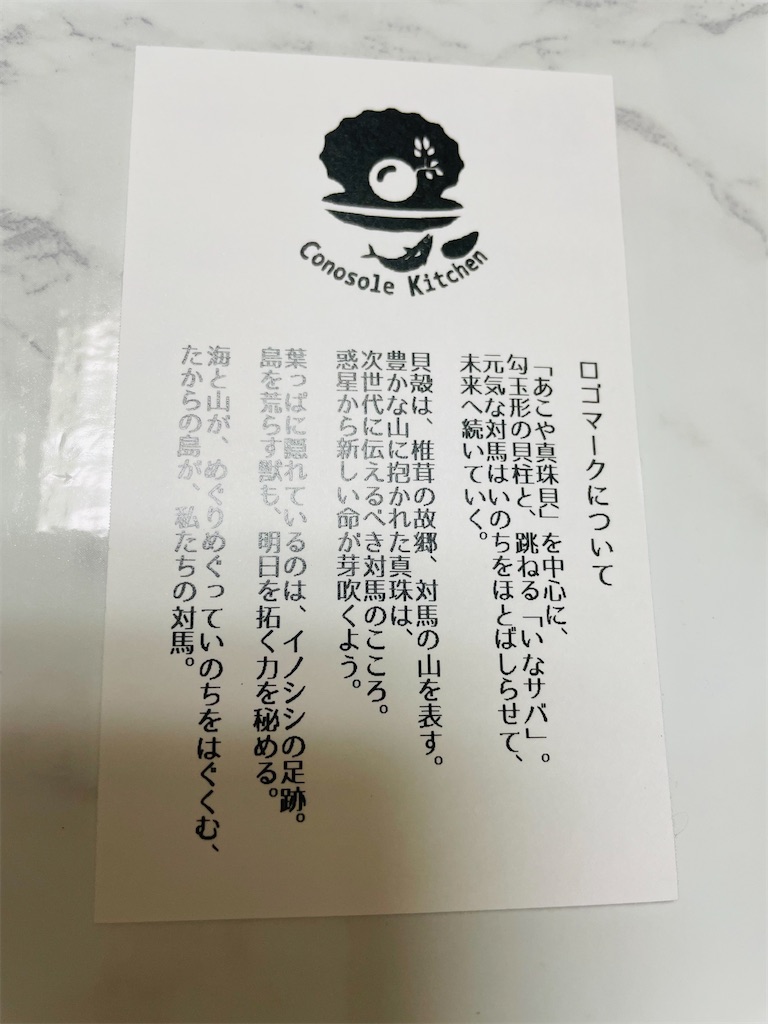 Conosole Kitchen
ロゴマークについて
「あこや真珠貝」を中心に、
勾玉形の貝柱と、跳ねる「いなサバ」。
元気な対馬はいのちをほとばしらせて、
未来へ続いていく。
貝殻は、椎茸の故郷、対馬の山を表す。
豊かな山に抱かれた真珠は、
次世代に伝えるべき対馬のこころ。
惑星から新しい命が芽吹くよう。
葉っぱに隠れているのは、イノシシの足跡。
島を荒らす獣も、明日を拓く力を秘める。
海と山が、めぐりめぐっていのちをはぐくむ、
たからの島が、私たちの対馬。